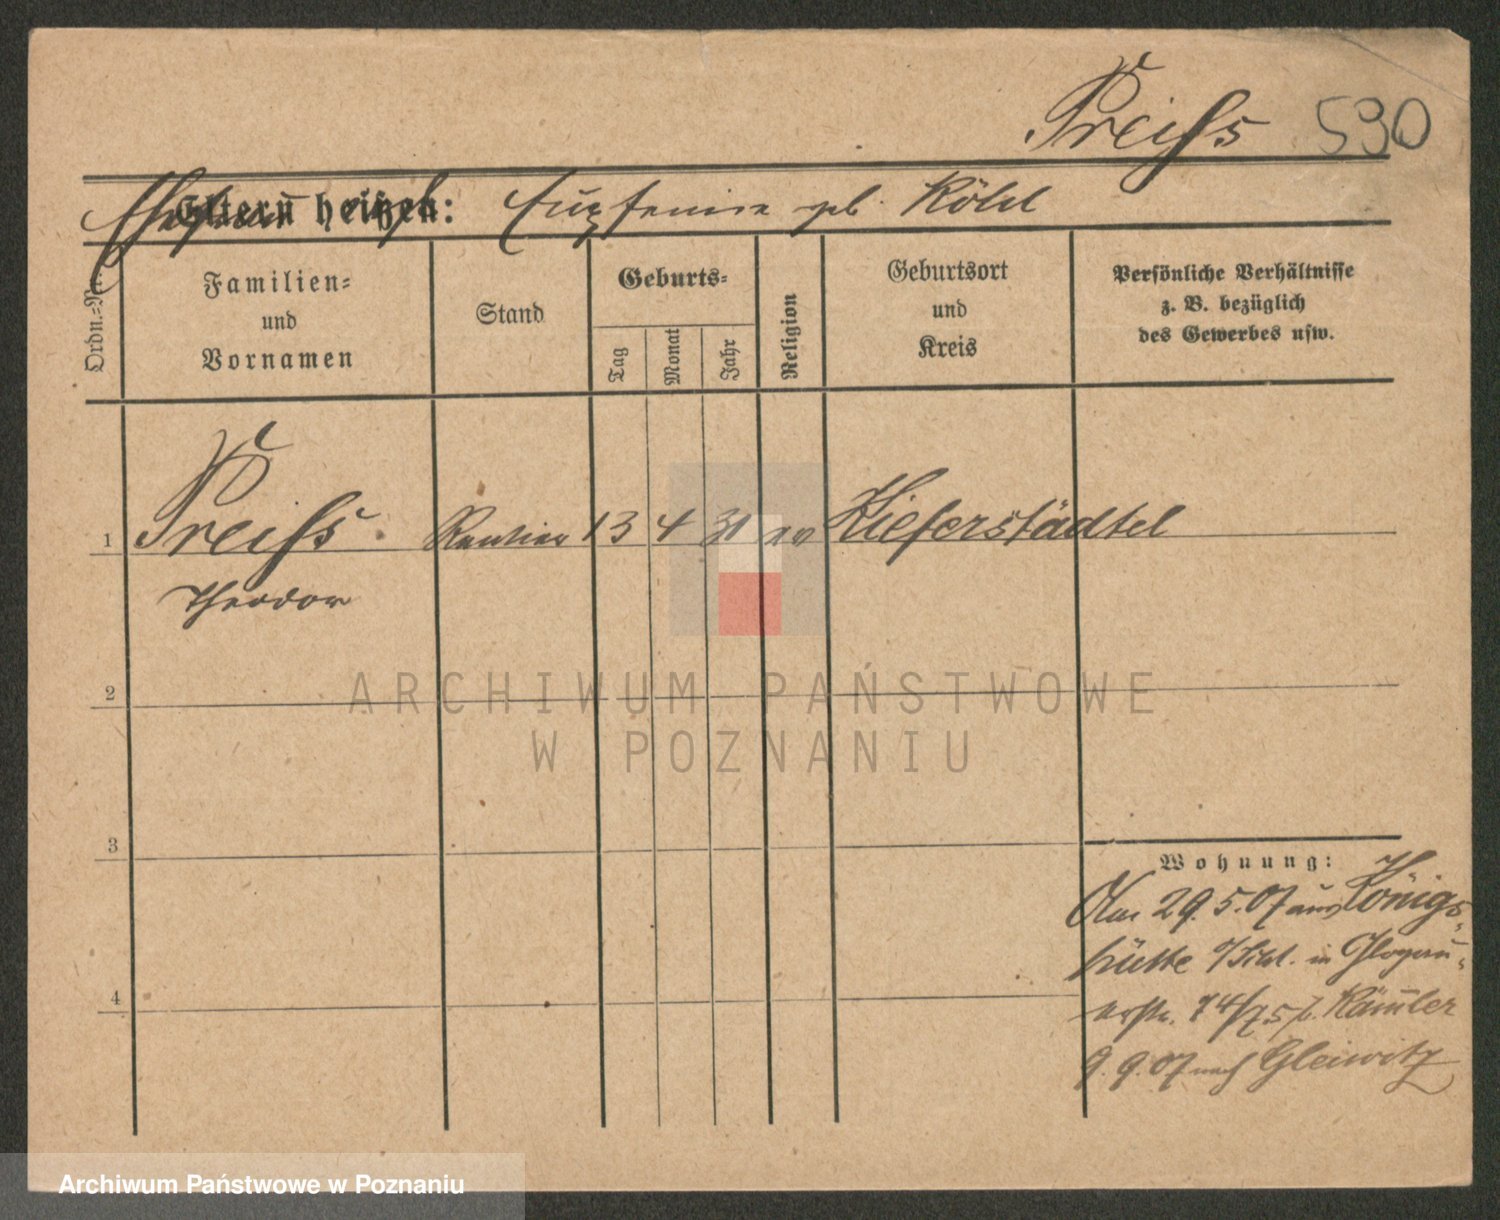 Preiss 590
Eltern heißen: Eufemie geb. Röhl
Ordn.-Nr.
Familien-
und
Vornamen
Stand
Geburts-
Tag
Monat
Jahr
Religion
Geburtsort
und
Kreis
Persönliche Verhältnisse
z. B. bezüglich
des Gewerbes usw.
1 Preiss Rentier 13 4 31 ev Kieferstädtel
Theodor
2
3
4
Wohnung:
29.5.07 aus Königs-
hütte in Glogau-
74/75 b. Kämler
9.9.07 nach Gleiwitz
ARCHIWUM PAŃSTWOWE
W POZNANIU
Archiwum Państwowe w Poznaniu